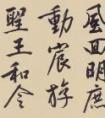 風回明庶
動宸游
聖王和令